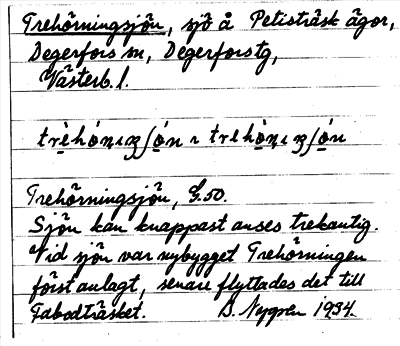 Trehörningsjön, sjö å Petisträsk ägor,
Degerfors sn, Degerforstg,
Västerb. l.
Trehörningsjön, G.50.
Sjön kan knappast anses trekantig.
Vid sjön var nybygget Trehörningen
först anlagt, senare flyttades det till
Tabodträsket. D. Nygren 1934.